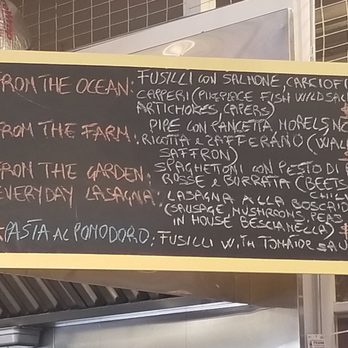 FROM THE OCEAN: FUSILLI CON SALMONE, CARCIOFI
CAPPERI ( FISH WILD SAL
ARTICHOKES, CAPERS)
FROM THE FARM: PIPE CON PANCETTA, MORELS, NO
RICOTTA e ZAFFERANO (WAL
SAFFRON)
FROM THE GARDEN: SPAGHETONI CON PESTO DI
ROSSE e BURRATA (BEETS
EVERYDAY LASAGNA: LASAGNA ALLA BOSCAIO
(SAUSAGE, MUSHROOMS, PEAS
IN HOUSE BESCIANELLA)
PASTA AL POMODORO: FUSILLI WITH TOMATOE SAU